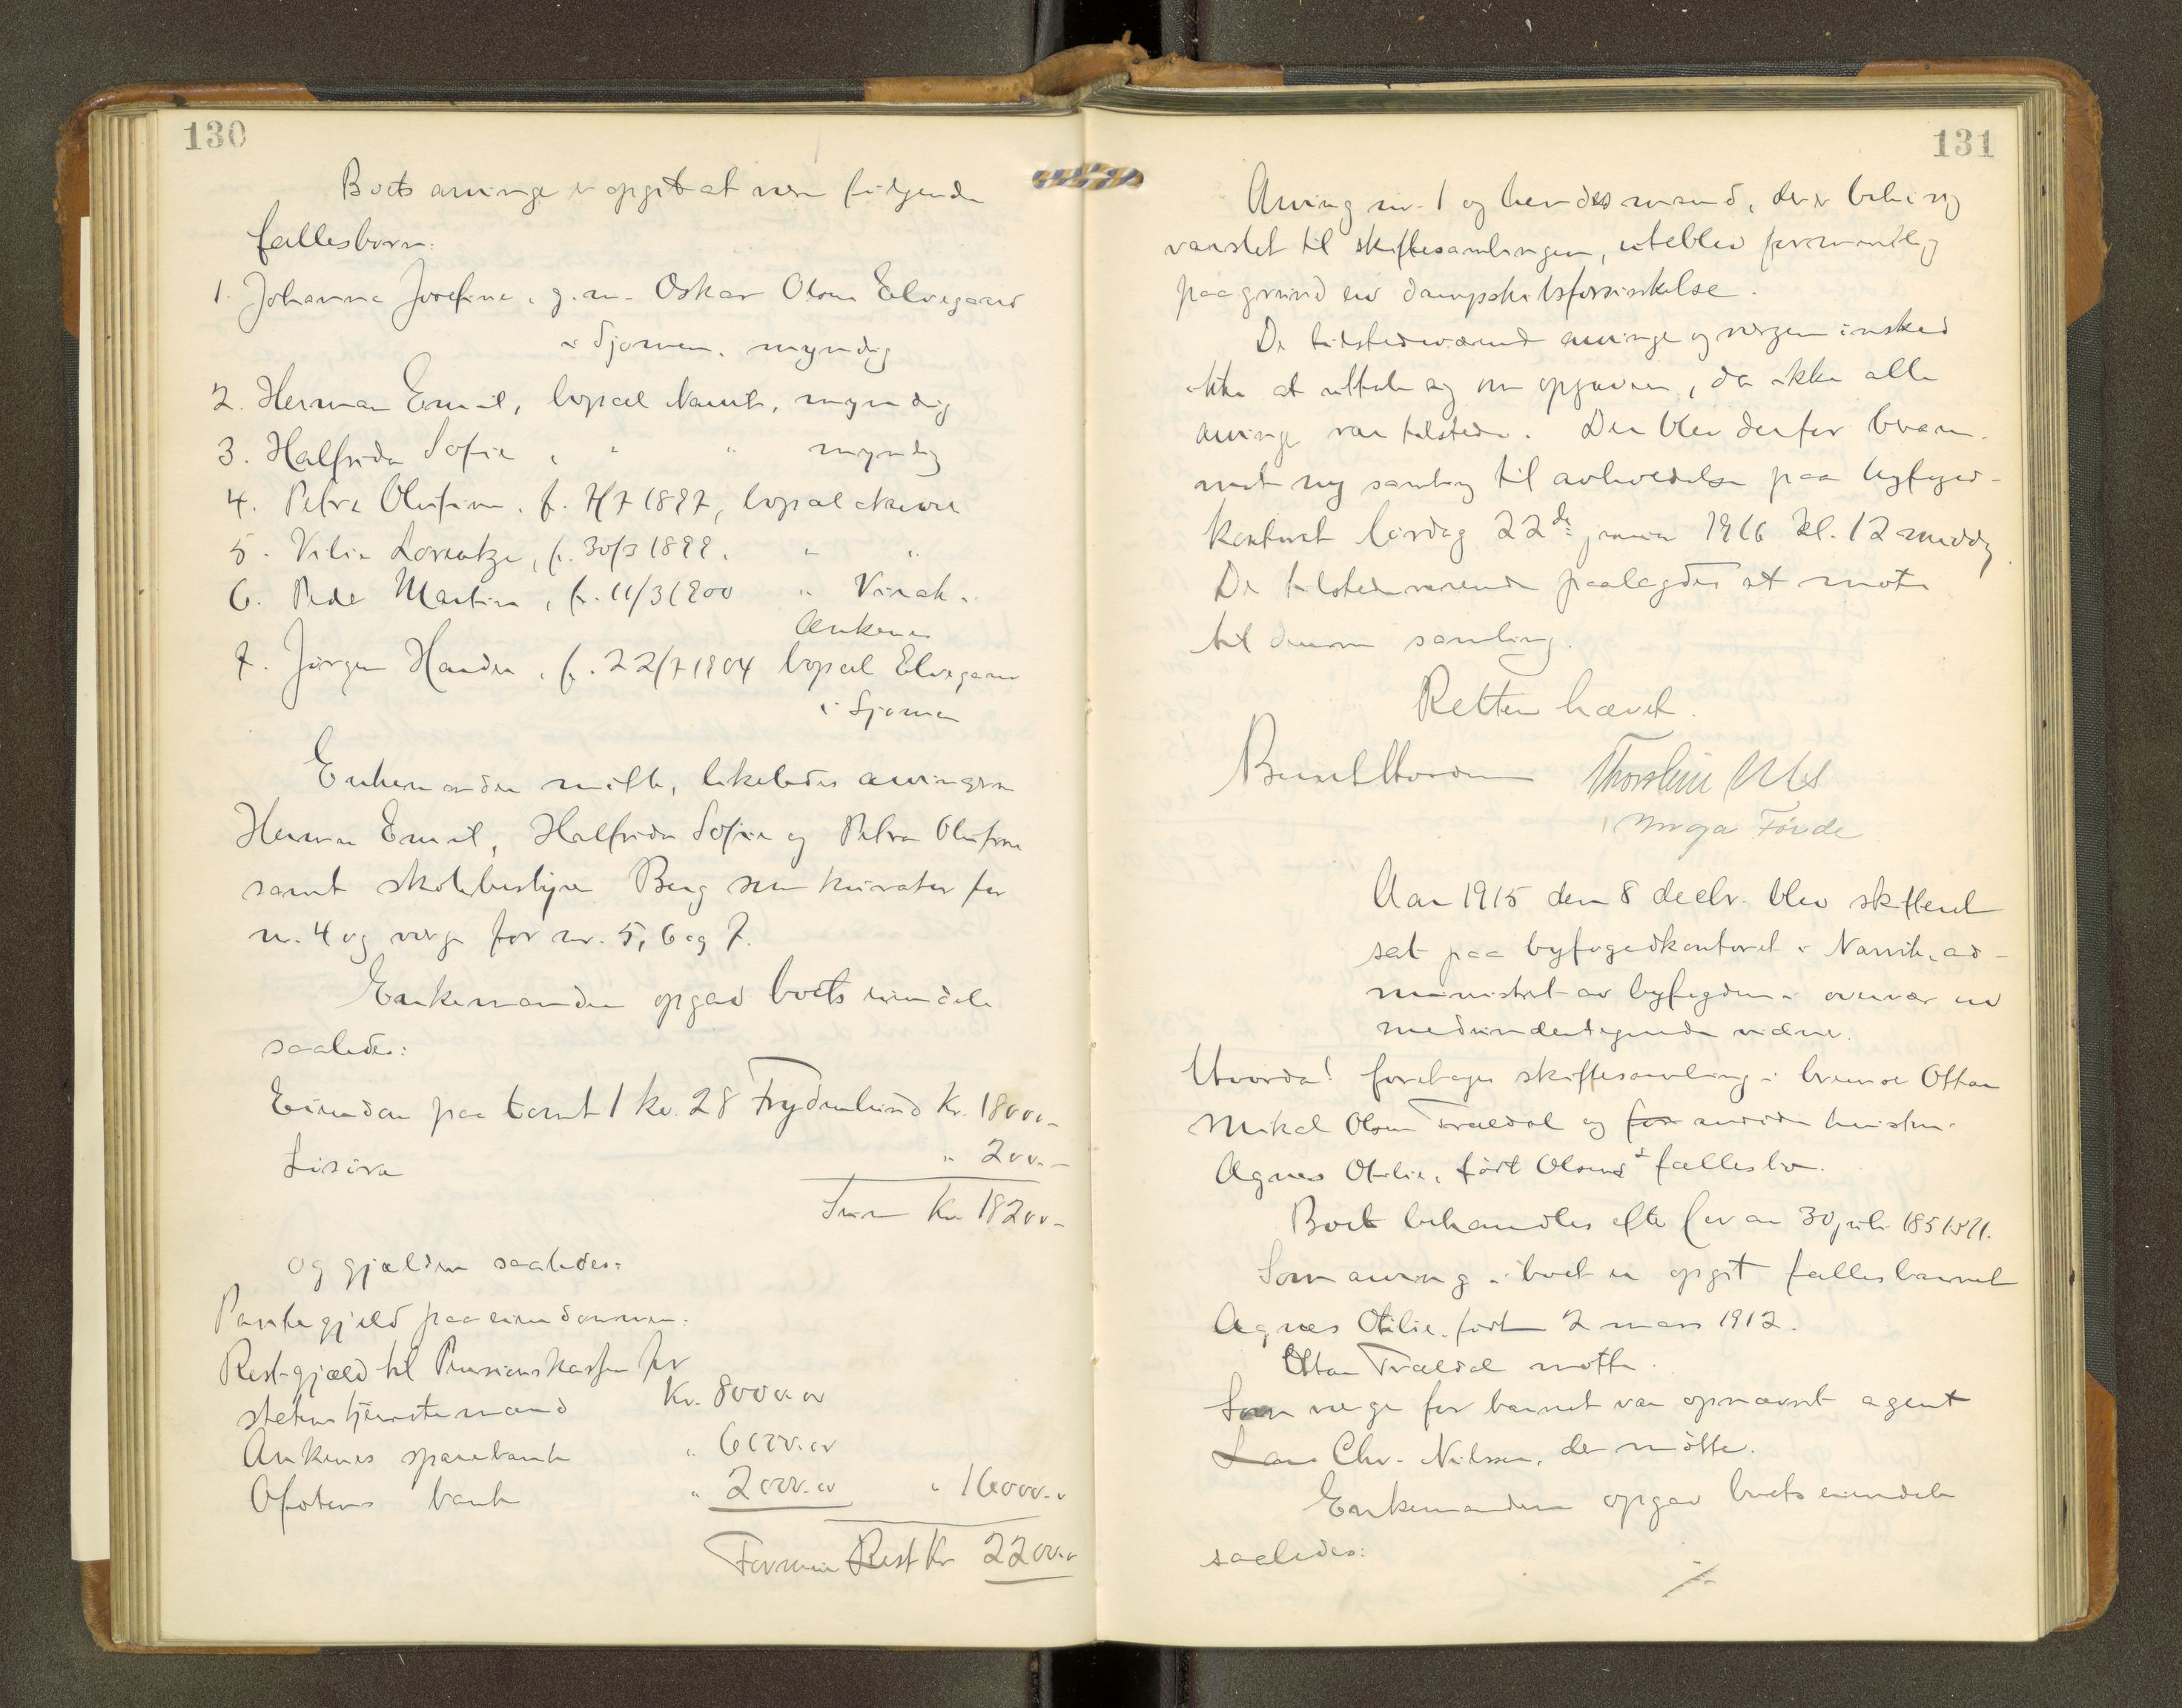 130
Boets arvinger er opgit at være følgende
fællesbørn:
1. Johanna Josefine, g. m. Oskar Olsen Elvegaard
i Sjomen. myndig
2. Herman Emil, bopæl Narvik, myndig
3. Halfrida Sofie, " " myndig
4. Petra Olufine, f. 4/7 1897, bopæl
5. Vilie Lorentze, f. 30/3 1899. " "
6. Peder Martin, f. 11/3 1900 "
Ankenes
7. Jørgen Hander, f. 22/7 1904 bopæl Elvegaard
i Sjomen
Enkemanden møtte, likeledes arvingerne
Herman Emil, Halfrida Sofie og Petra Olufine
samt skolebestyrer Berg som kurator for
nr. 4 og verge for nr. 5, 6 og 7.
Enkemanden opgav boets eiendele
saaledes:
Eiendom paa tomt 1 kv. 28 Frydenlund Kr. 18000.-
Løsøre " 200.-
Sum Kr. 18200.-
og gjælden saaledes:
Pantegjæld paa eiendommen:
Restgjæld til Pensionskassen for
statens tjenestemænd Kr. 8000.00
Ankenes sparebank " 6000.00
Ofotens bank " 2000.00 " 16000.00
Formue Rest Kr 2200.00
131
Arving nr. 1 og hendes mand, der er behørig
varslet til skiftesamlingen, uteblev formentlig
paa grund av dampskibsforsinkelse.
De tilstedeværende arvinger og vergen ønsked
ikke at uttale sig om opgaven, da ikke alle
arvinger var tilstede. Der blev derfor beram-
met ny samling til avholdelse paa byfoged-
kontoret lørdag 22de januar 1916 kl. 12 middag
De tilstedeværende paalagdes at møte
til denne samling.
Retten hævet.
Thorstein
Førde
Aar 1915 den 8 decbr. blev skifteret
sat paa byfogedkontoret i Narvik, ad-
ministrert av byfogden i overvær av
medundertegnede vidner.
Hvorda! foretages skiftesamling i brevbærer Ottar
Mikal Olsen Trældal og for avdøde hustru
Agnes Otilie, født Olsens fællesbo.
Boet behandles efter lov av 30 juli 1851 § 91.
Som arving i boet er opgit fællesbarnet
Agnes Otilie, født 2 mars 1912.
Ottar Trældal møtte.
Som verge for barnet var opnævnt agent
Lars Chr. Nilssen, der møtte.
Enkemanden opgav boets eiendele
saaledes: